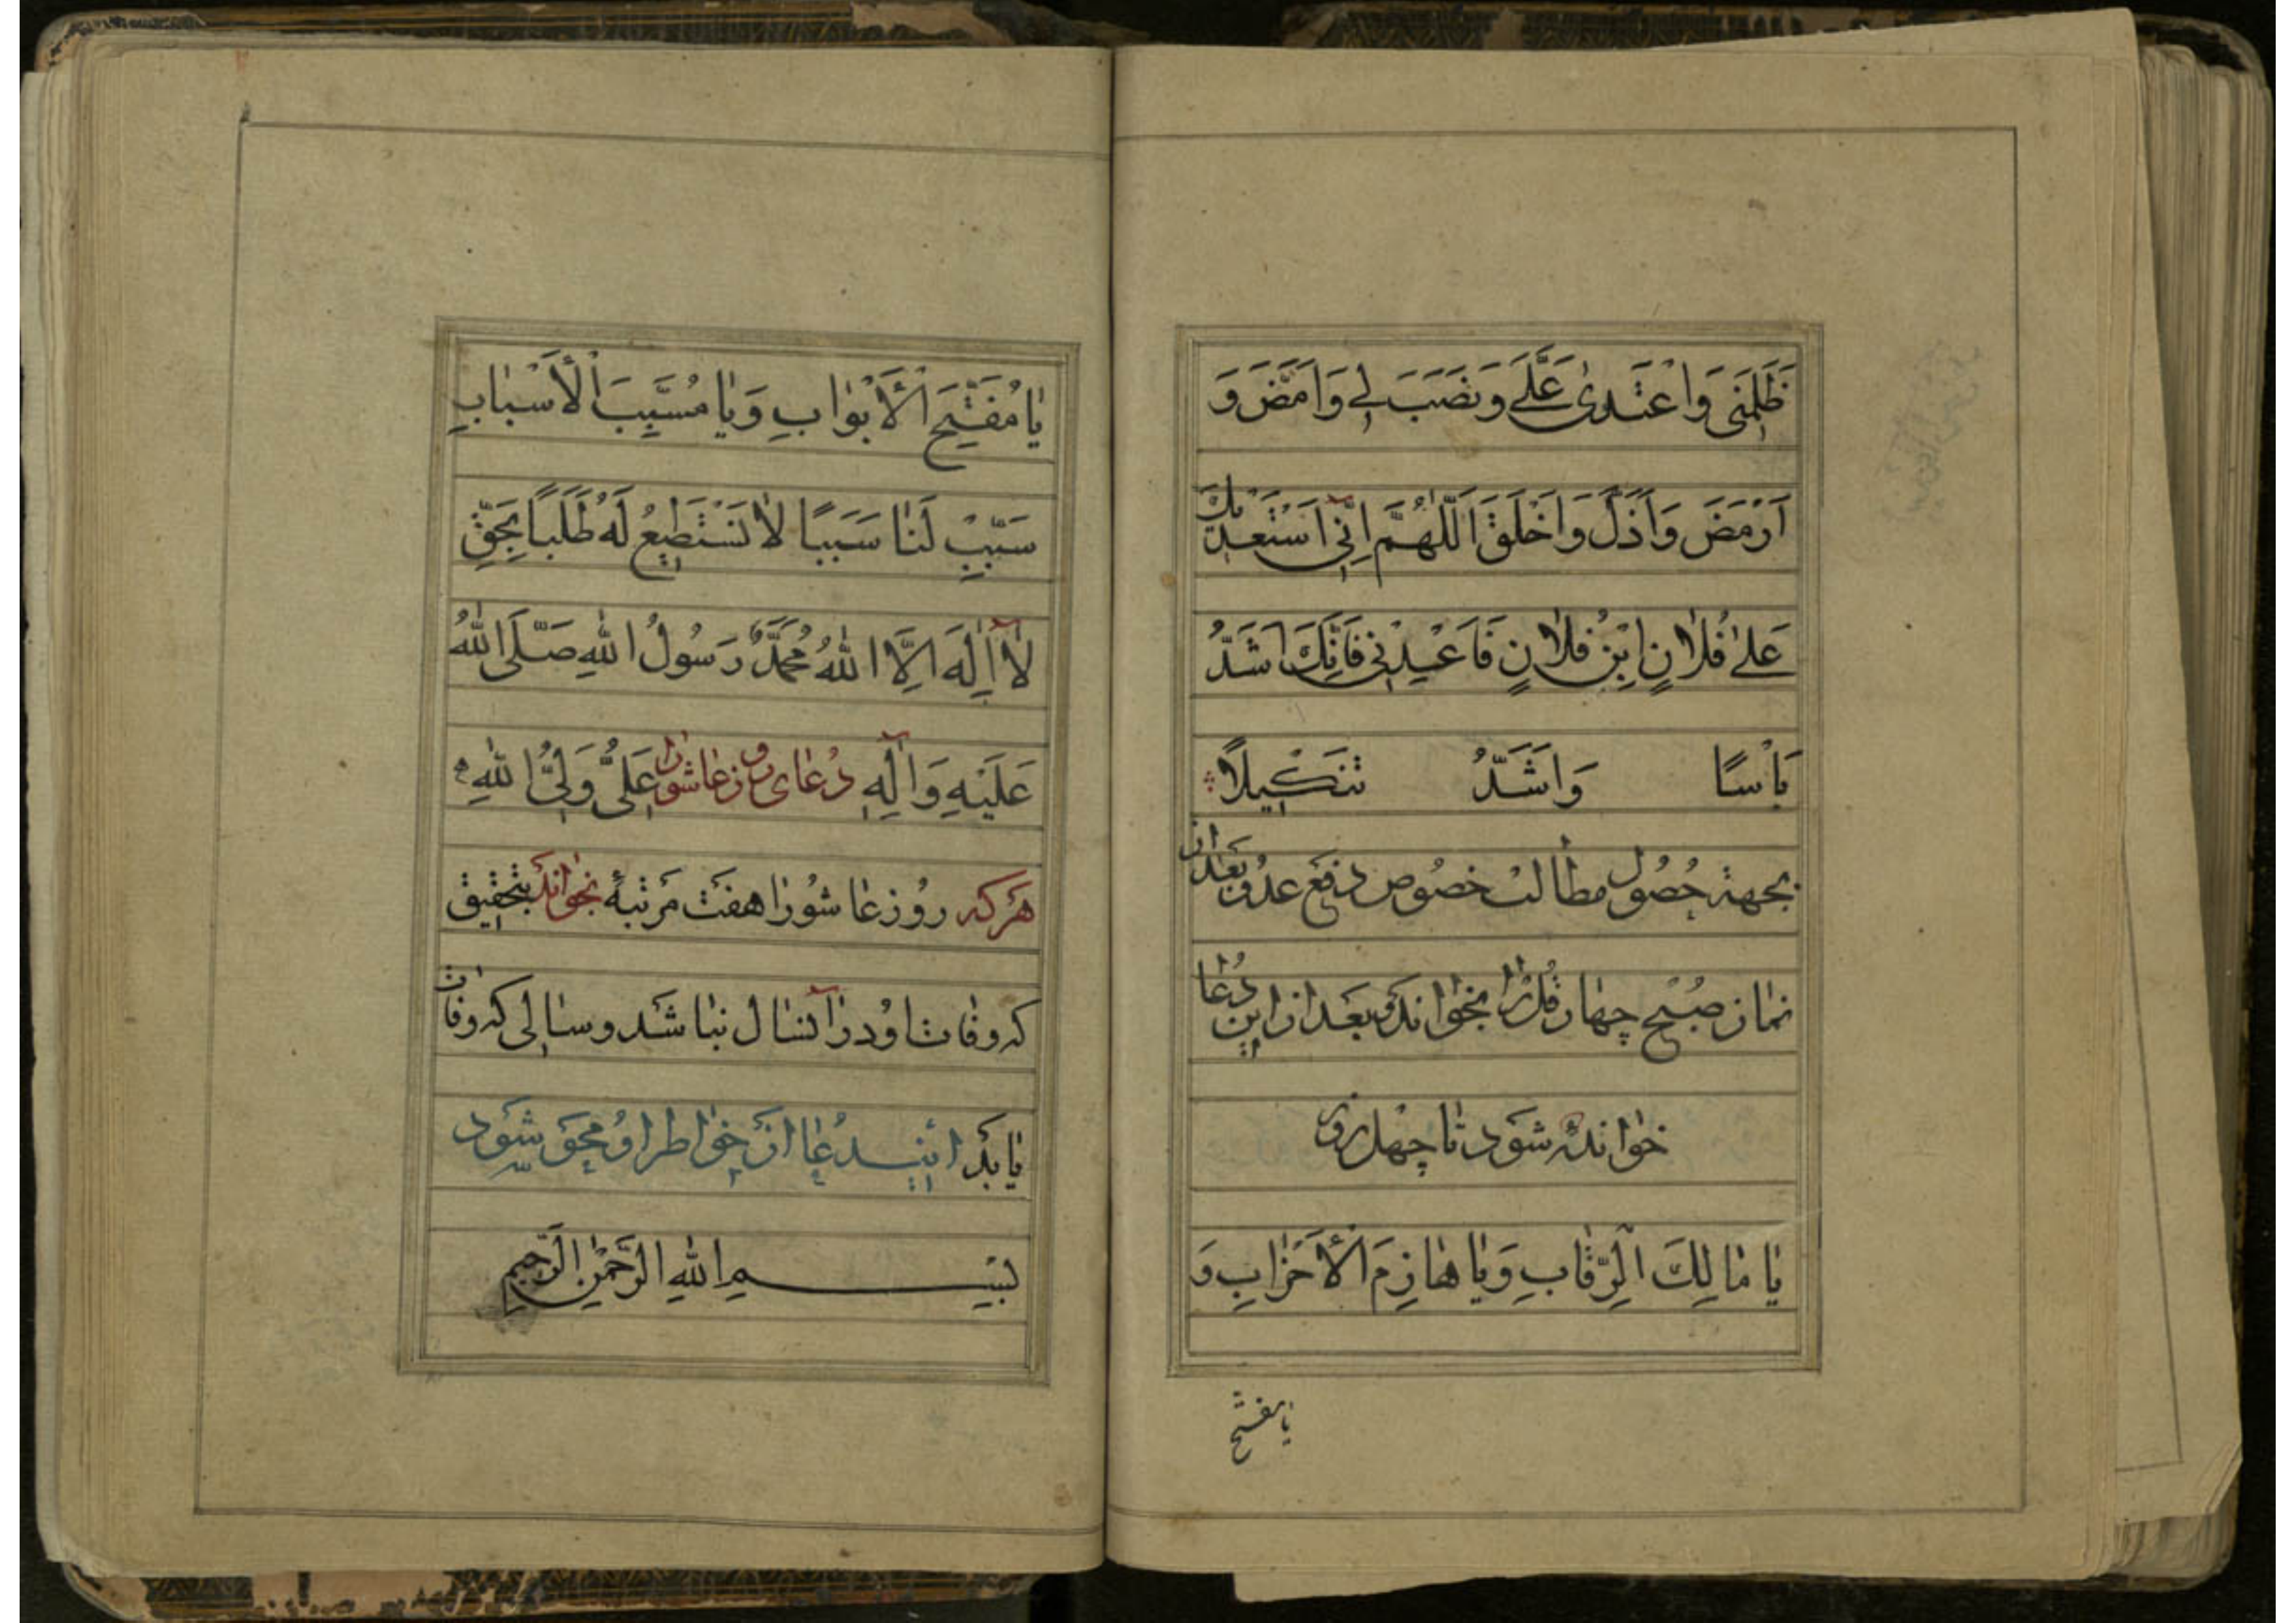 ظَلَمَنِی وَاعْتَدیٰ عَلَّےَ وَنَصَبَ لِے وَاَمَضَّ وَ
اَرْمَضَ وَاَذَلَّ وَاَخْلَقَ اَللّٰهُمَّ اِنّٖی اَسْتَعِدُّ بِكَ
عَلیٰ فُلٰانٍ اِبْنِ فُلٰانٍ فَاَعِدْنٖی فَاِنَّكَ اَشَدُّ
بَاْسًا وَاَشَدُّ تَنْكٖیلًا
بجهة حُصُول مطالب خصُوص دفع عدُو بَعد از
نماز صُبْح چهار قُل را بخواند و بَعد از این دُعا
خوانده شَود تا چهل روز
یٰا مٰالِكَ الرِّقٰابِ وَیٰا هٰازِمَ الْأَحْزٰابِ وَ
یا مفتح
یٰا مُفَتِّحَ الْأَبْوٰابِ وَیٰا مُسَبِّبَ الْأَسْبٰابِ
سَبِّبْ لَنٰا سَبَبًا لٰا نَسْتَطٖیعُ لَهُ طَلَبًا بِحَقِّ
لٰا اِلٰهَ اِلَّا اللّٰهُ مُحَمَّدٌ رَسُولُ اللّٰهِ صَلَّی اللّٰهُ
عَلَیْهِ وَاٰلِهِ دُعٰای روز عاشورا عَلِیٌّ وَلِیُّ اللّٰهِ
هَرکه روُز عٰاشوُرا هفت مَرتبهٔ بخواند بتحقیق
که وفات اوُ در آنسال نباشد و سالی که وفات
یابَد اینـدُعا از خواطر اوُ محو شَود
بِسْمِ اللّٰهِ الرَّحْمٰنِ الرَّحٖیمِ